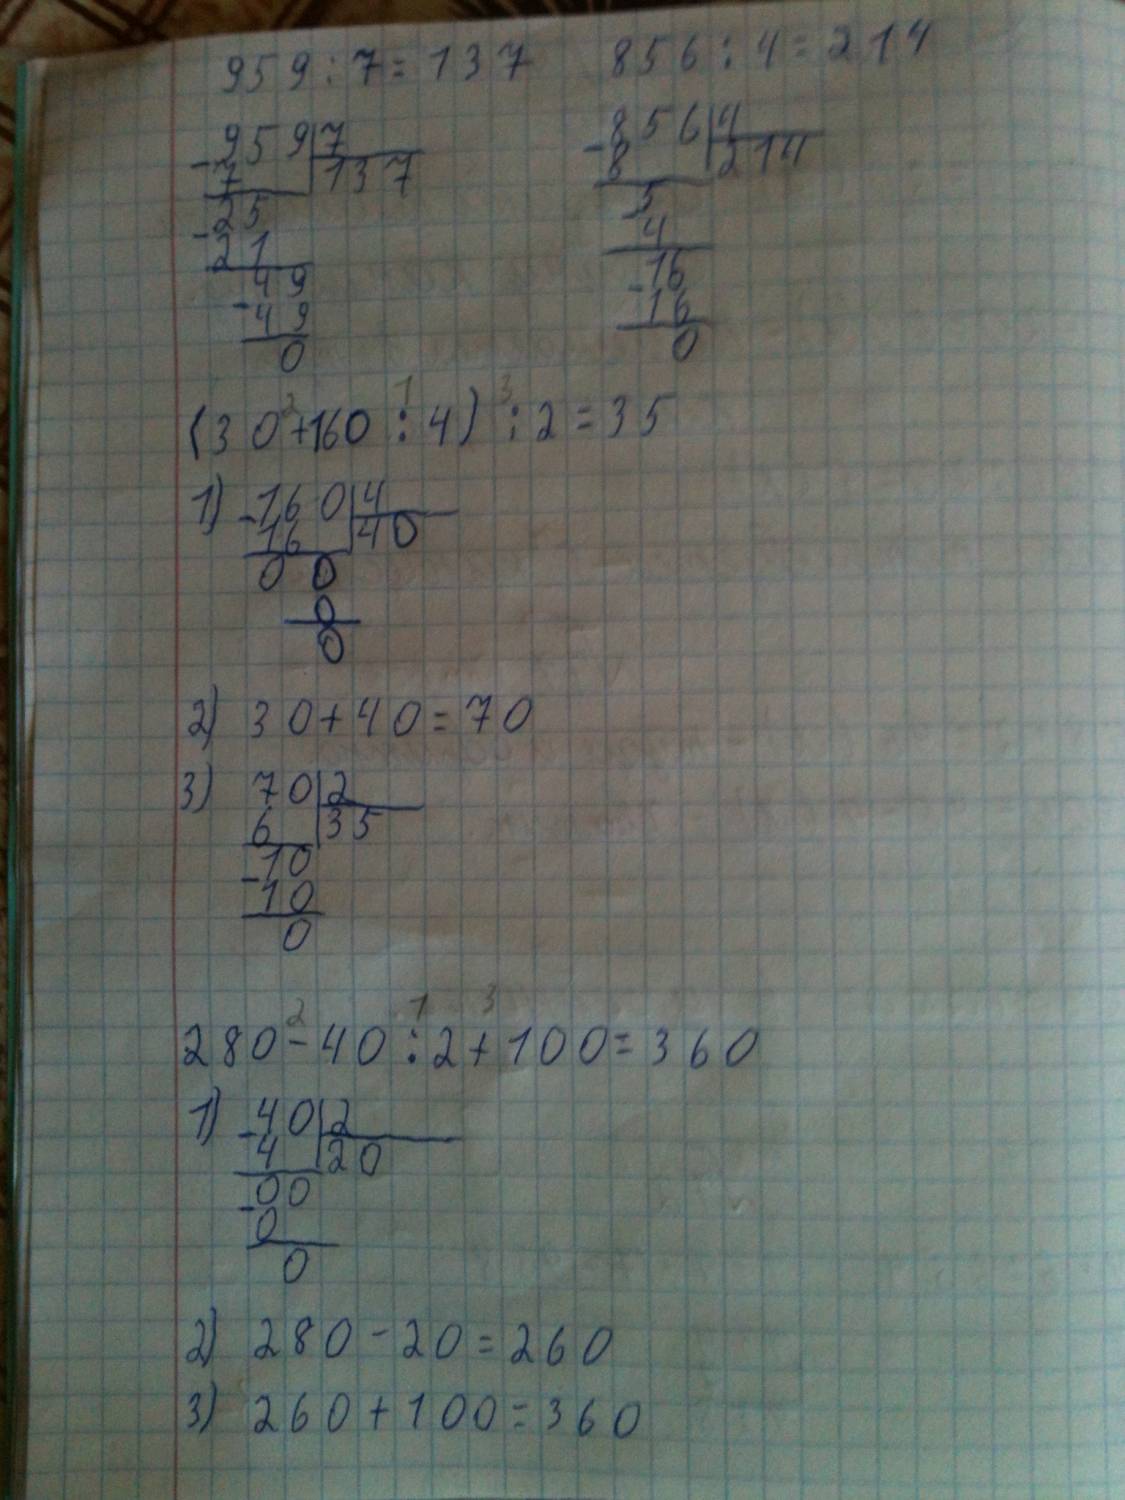 959 : 7 = 137   856 : 4 = 214
-959|7   -856|4
7   |137   8   |214
-25   -5
21   4
-49   -16
49   16
0   0
2   1   3
(30+160 : 4) : 2 = 35
1) -160|4
16 |40
0 0
0
0
2) 30+40=70
3) 70|2
6 |35
-10
10
0
2   1   3
280-40 : 2+100=360
1) -40|2
4 |20
-00
0
0
2) 280-20=260
3) 260+100=360